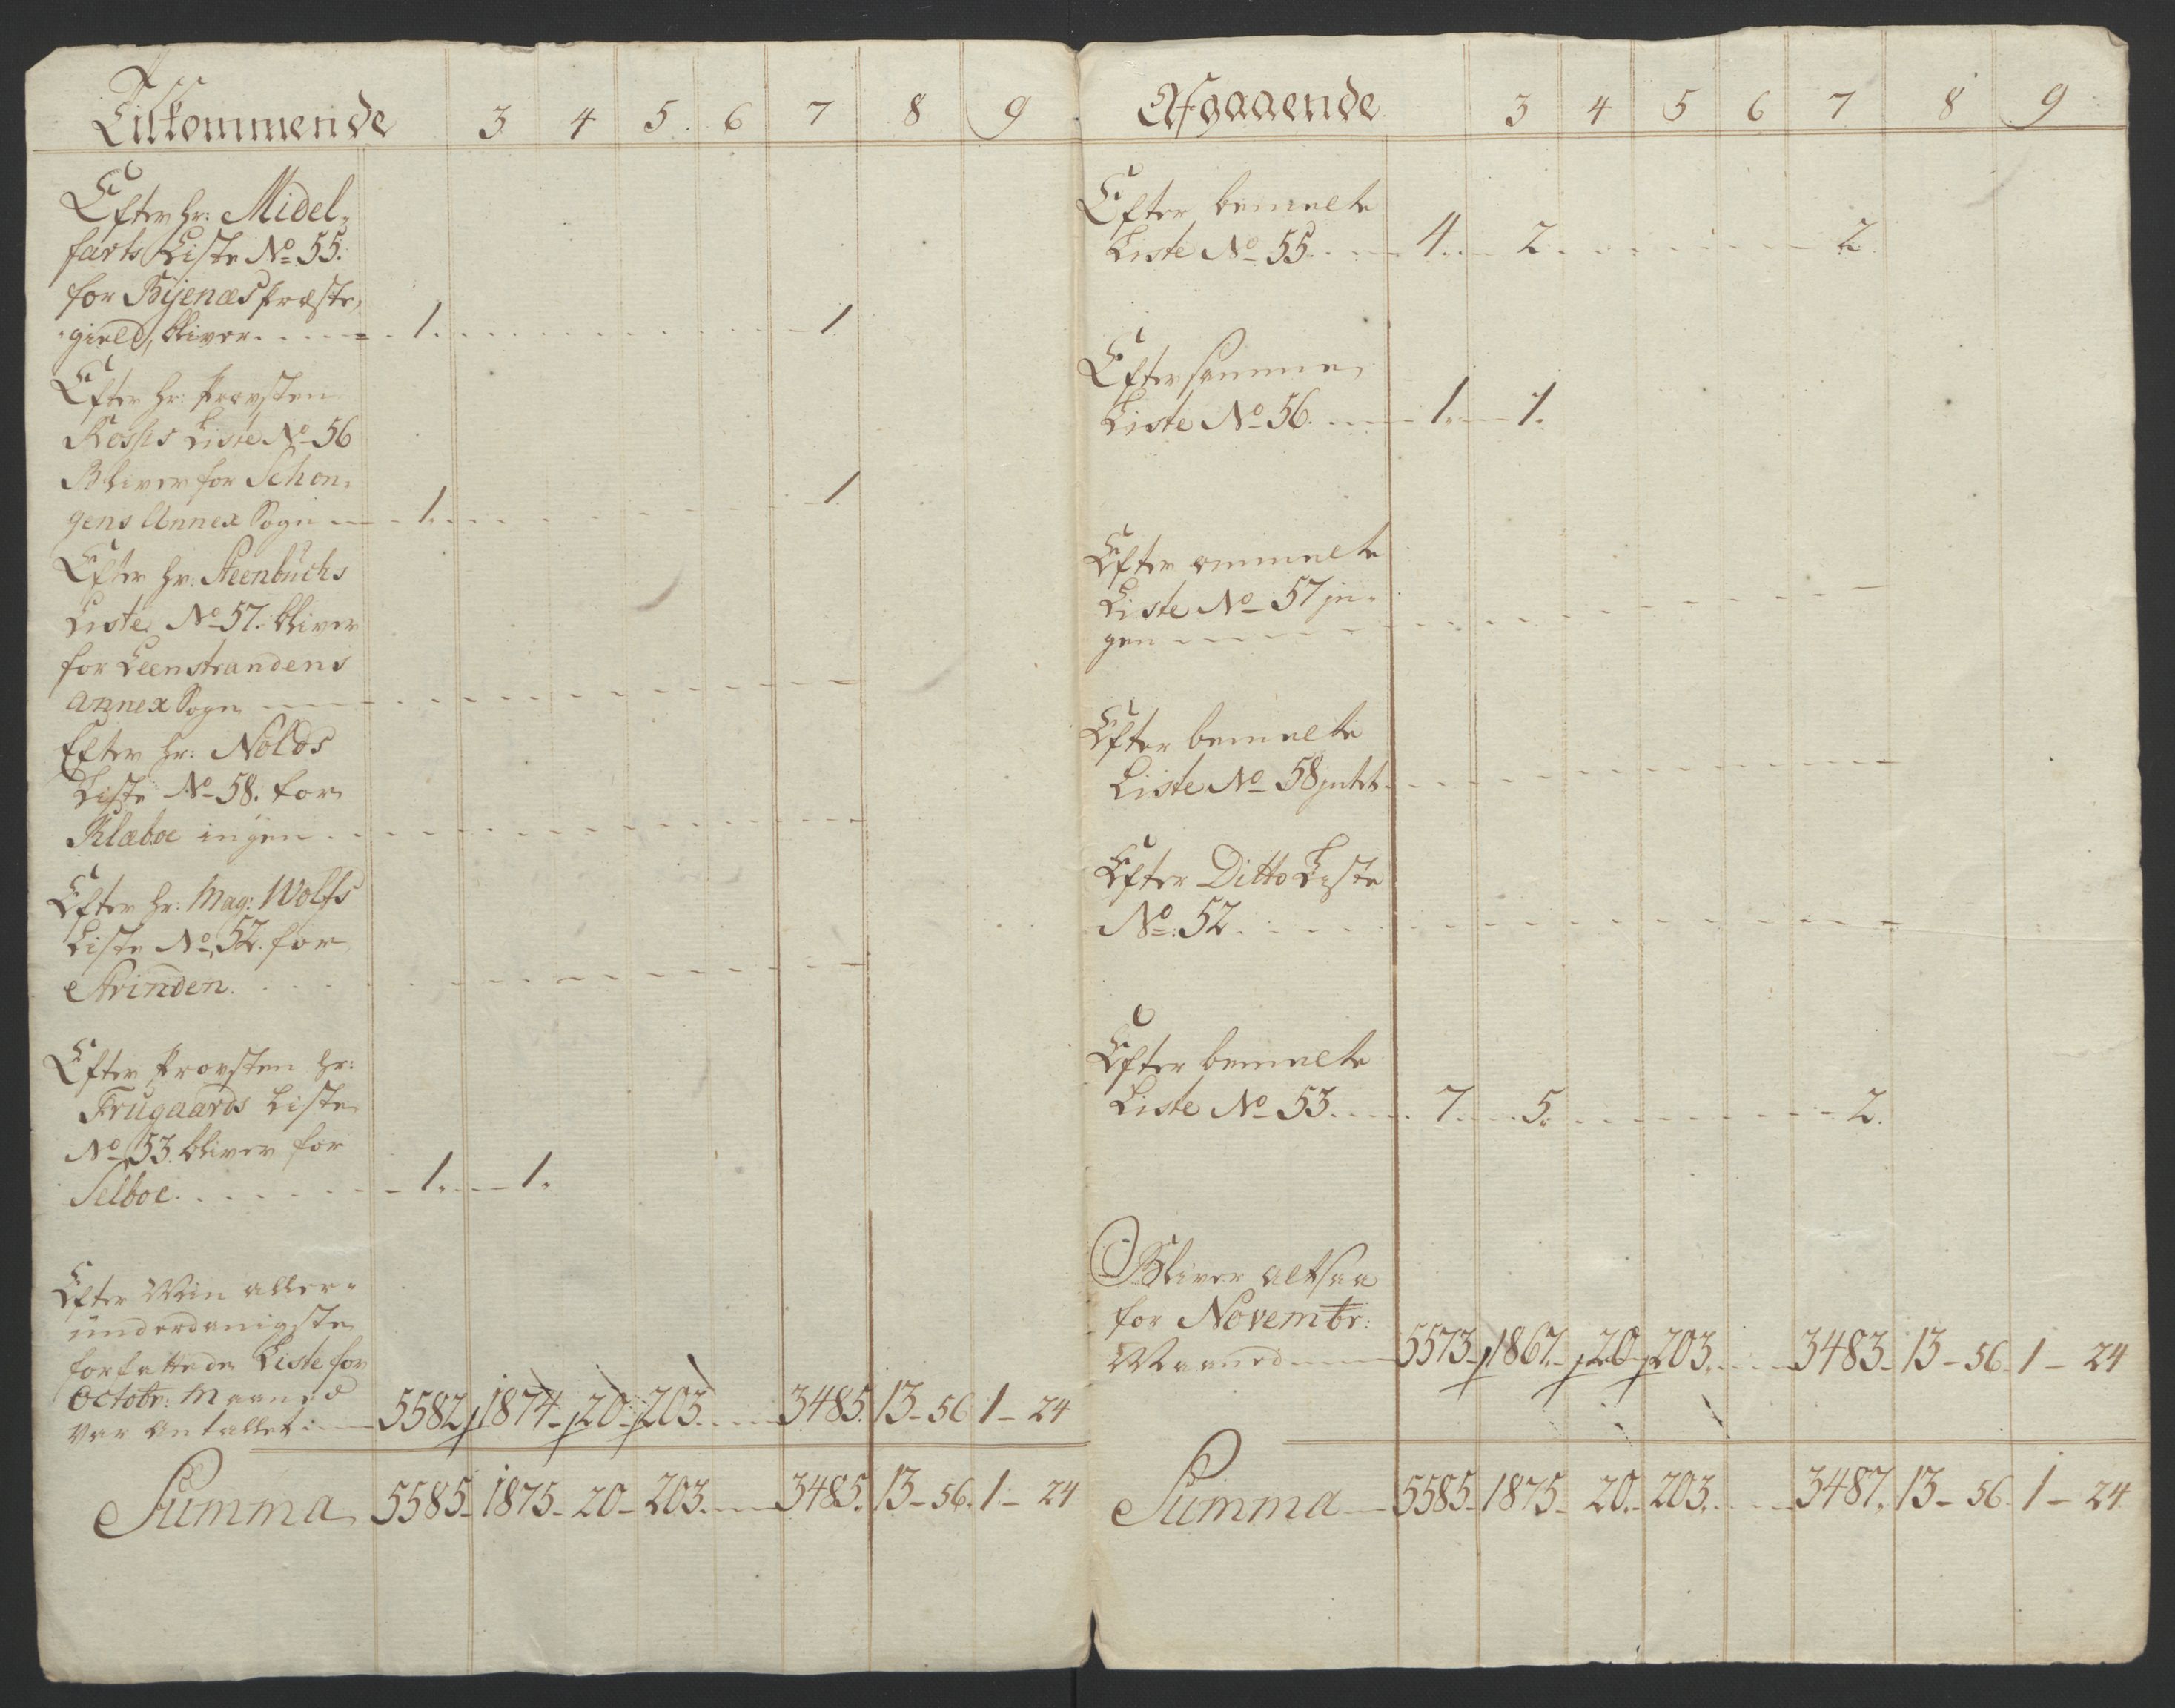 Tilkommende 3 4 5. 6 7 8 9
Efter hr: Midel-
farts Liste No 55.
for Bÿenæs Præste-
gield, bliver . . . . 1 . . . . 1
Efter hr: Provsten
Liste No 56
Bliver for Schon-
gens Annex Sogn — 1 . . . . 1.
Efter hr: Steenbuchs
Liste No 57. bliver
for Leenstrandens
annex Sogn — — — —
Efter hr: Nolds
Liste No 58. for
Klæboe ingen . — — — —
Efter hr: Mag: Wolfs
Liste No 52. for
Strinden. — — — —
Efter Provsten hr:
Frugaards Liste
No 53. bliver for
Selboe . . . . — 1. — 1.
Efter Min aller-
underdanigste
forfattede Liste for
Octobr: Maaned
var Antallet: — 5582 1874 - 20 - 203. — 3485. 13 - 56 1 - 24
Summa 5585 - 1875 - 20 - 203. — 3485. 13 - 56. 1 - 24
Afgaaende 3 4 5 6 7 8 9
Efter bemelte
Liste No 55. . — 4. — 2. . . . — 2.
Efter samme
Liste No 56. — 1. — 1.
Efter ommelte
Liste No 57 jn-
gen — — — —
Efter bemelte
Liste No 58 jntet. — — — —
Efter Ditto Liste
No: 52. — — — —
Efter bemelte
Liste No 53. . . . 7. . . . 5. . . . - 2.
Bliver altsaa
for Novembr:
Maaned — 5573 - 1867. - 20 - 203. — 3483 - 13 - 56. 1 - 24
Summa — 5585 - 1875 - 20. - 203. — 3487. 13 - 56. 1 - 24